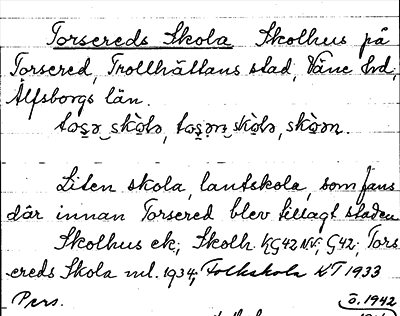 Torsereds Skola Skolhus på
Torsered, Trollhättans stad, Väne hd,
Älfsborgs län.
Liten skola, lantskola, som fans
där innan Torsered blev tillagt staden
Skolhus ek; Skolh. KG42 NV; G42; Tors
ereds Skola ml. 1934; Folkskola KT 1933
Pers. ö. 1942